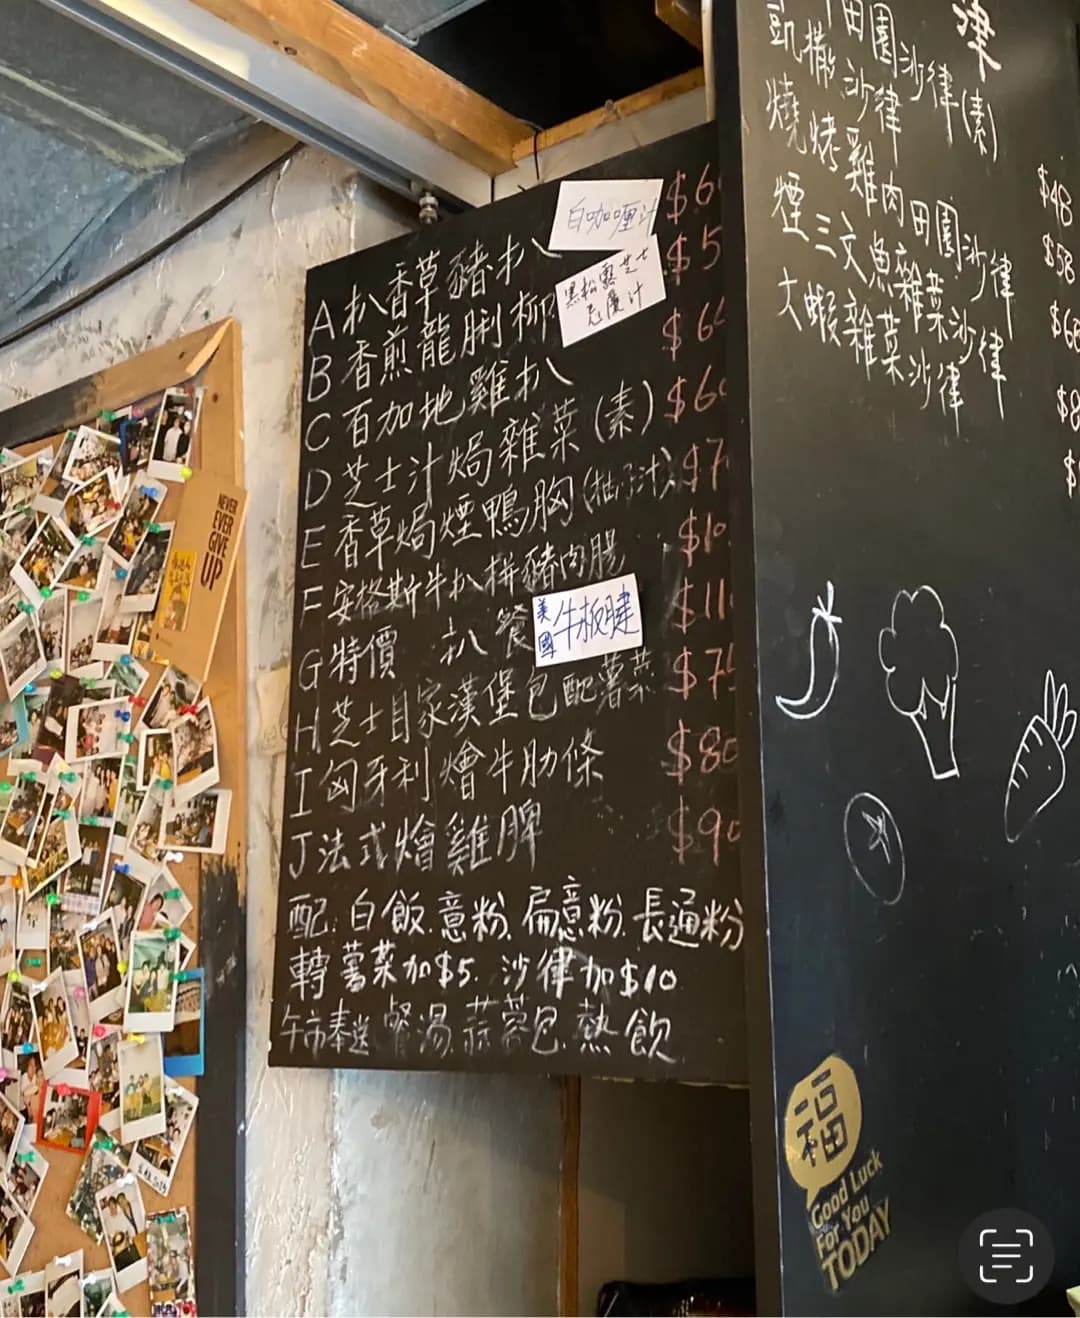 白咖喱汁
A 扒香草豬扒 $6
黑松露芝士
忌廉汁
B 香煎龍脷柳 $5
C 百加地雞扒 $6
D 芝士汁焗雜菜(素) $6
E 香草焗煙鴨胸(柚子汁) $7
F 安格斯牛扒拼豬肉腸 $10
G 特價 扒餐 $11
美國牛板腱
H 芝士自家漢堡包配薯菜 $7
I 匈牙利燴牛肋條 $80
J 法式燴雞髀 $90
配. 白飯. 意粉. 扁意粉. 長通粉
轉薯菜加$5. 沙律加$10
午市奉送 餐湯. 蒜蓉包. 熱飲
律
田園沙律(素) $48
凱撒沙律 $58
燒烤雞肉田園沙律 $68
煙三文魚雜菜沙律 $8
大蝦雜菜沙律 $
NEVER
EVER
GIVE
UP
福
Good Luck
For You
TODAY